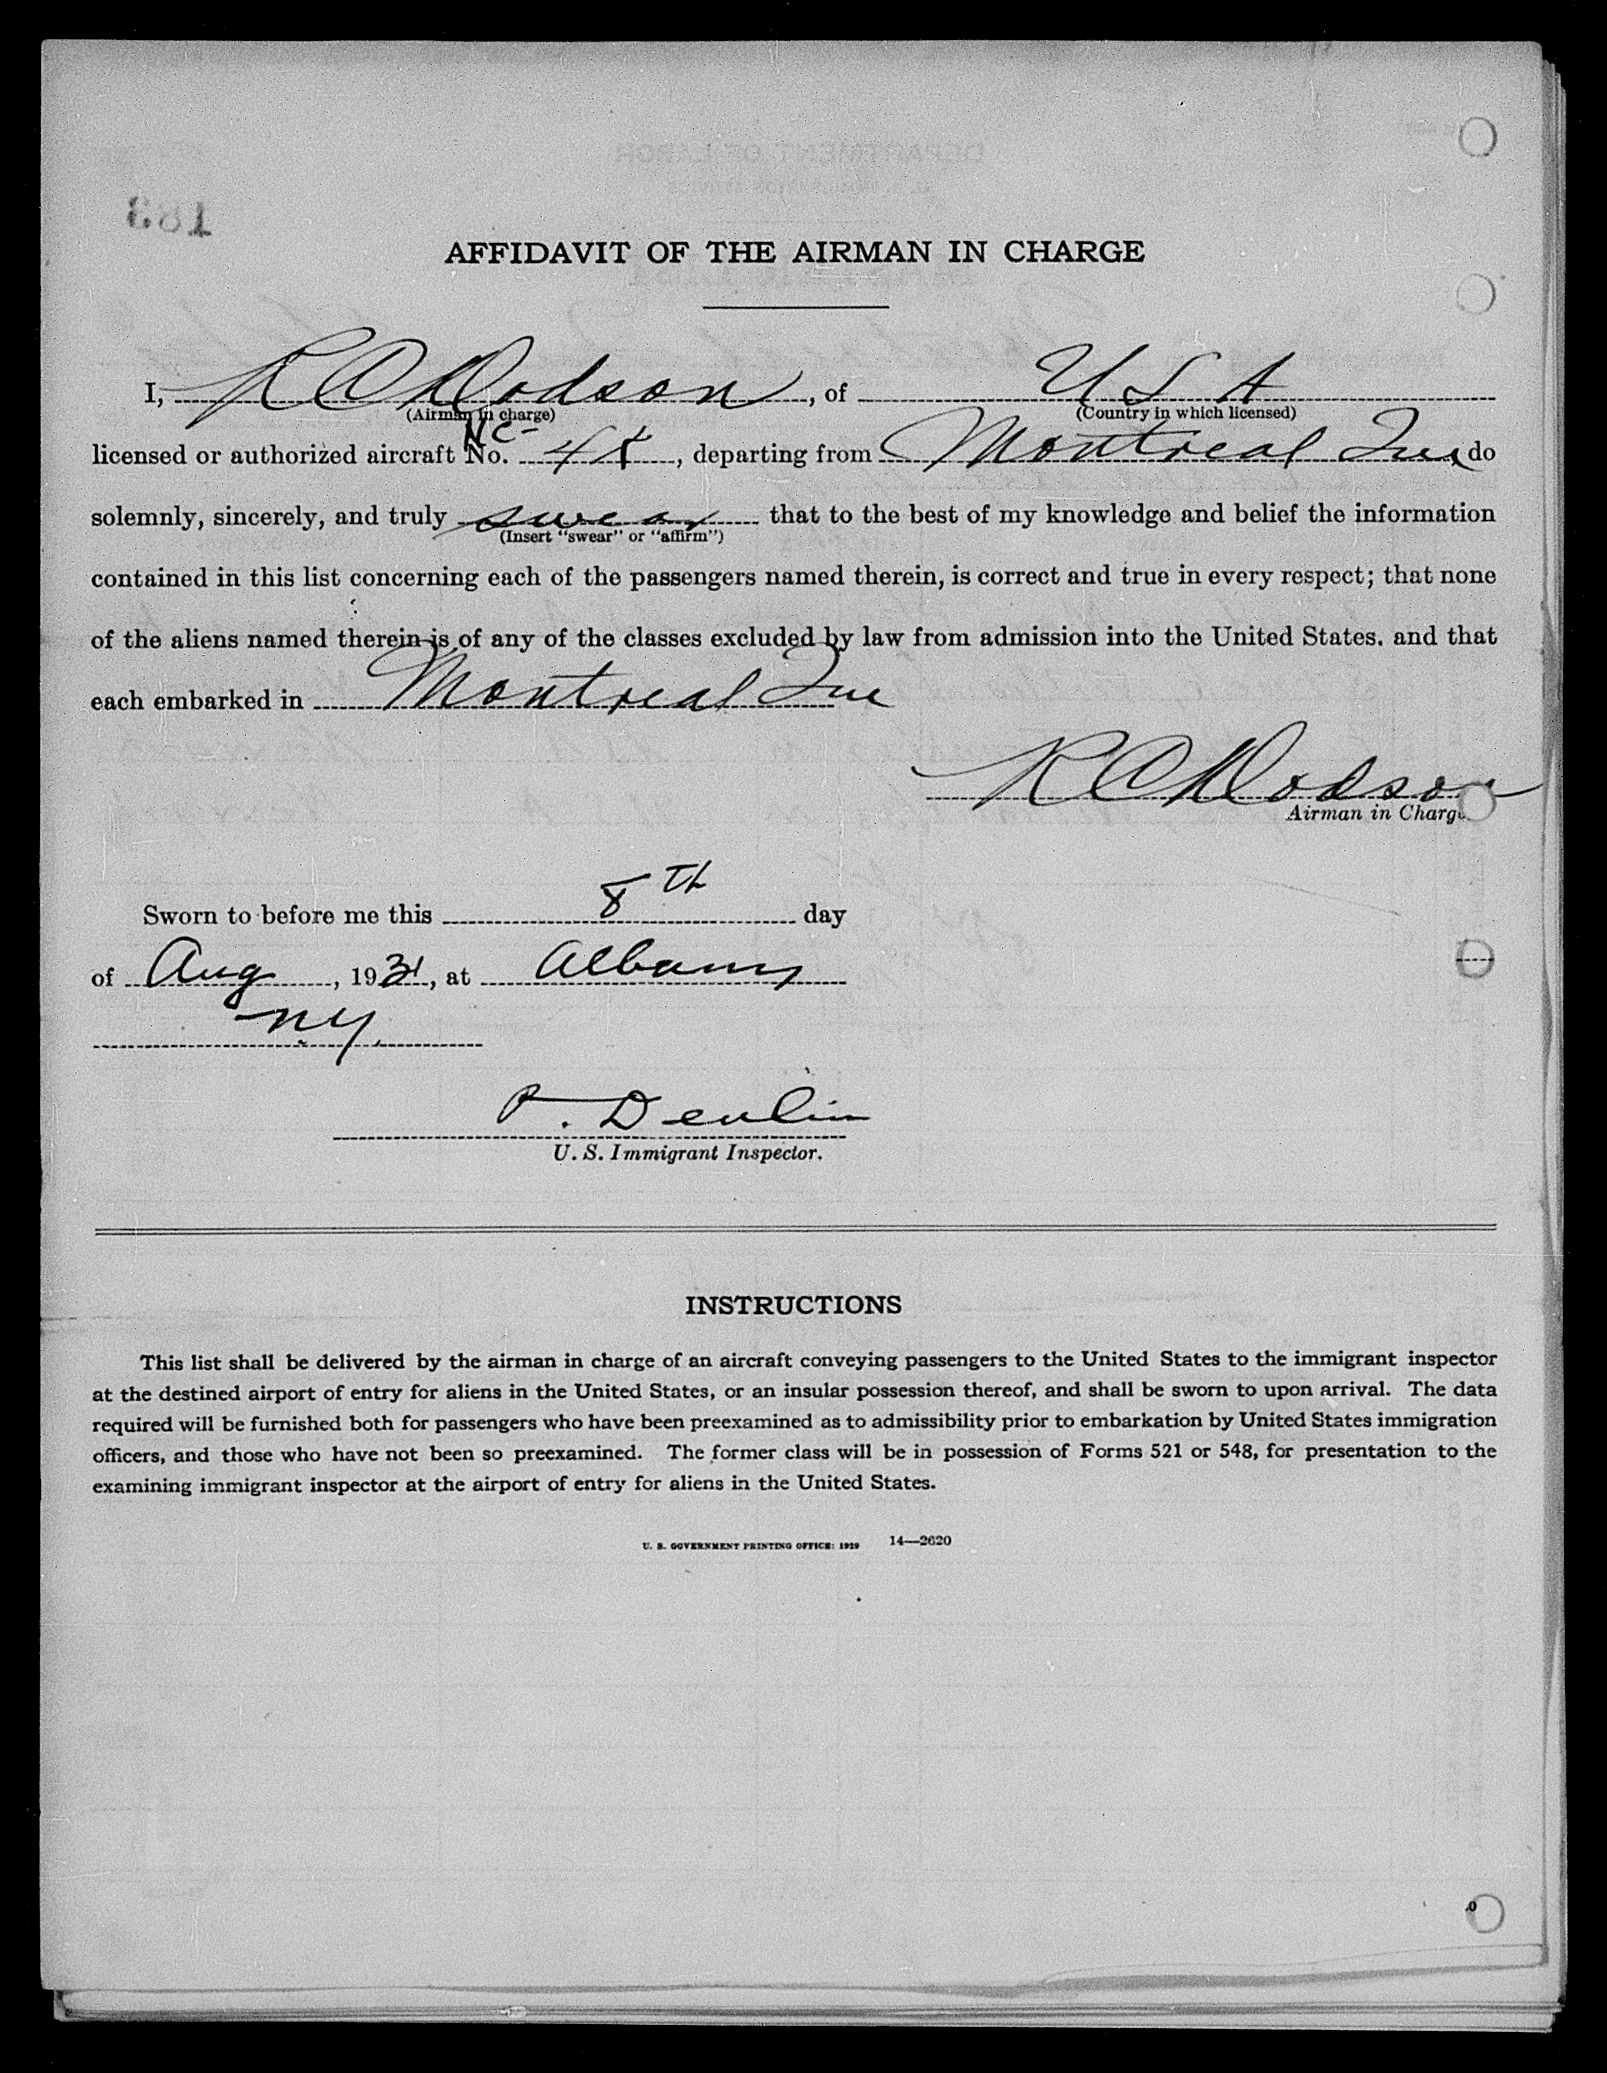 AFFIDAVIT OF THE AIRMAN IN CHARGE
I, R C Dodson, of U S A
(Airman in charge) (Country in which licensed)
NC-
licensed or authorized aircraft No. 4, departing from Montreal Que, do
solemnly, sincerely, and truly swear that to the best of my knowledge and belief the information
(Insert "swear" or "affirm")
contained in this list concerning each of the passengers named therein, is correct and true in every respect; that none
of the aliens named therein is of any of the classes excluded by law from admission into the United States, and that
each embarked in Montreal Que
R C Dodson
Airman in Charge
Sworn to before me this 8th day
of Aug, 1931, at Albany
N.Y.
P. Devlin
U. S. Immigrant Inspector.
INSTRUCTIONS
This list shall be delivered by the airman in charge of an aircraft conveying passengers to the United States to the immigrant inspector
at the destined airport of entry for aliens in the United States, or an insular possession thereof, and shall be sworn to upon arrival. The data
required will be furnished both for passengers who have been preexamined as to admissibility prior to embarkation by United States immigration
officers, and those who have not been so preexamined. The former class will be in possession of Forms 521 or 548, for presentation to the
examining immigrant inspector at the airport of entry for aliens in the United States.
U. S. GOVERNMENT PRINTING OFFICE: 1929 14—2620